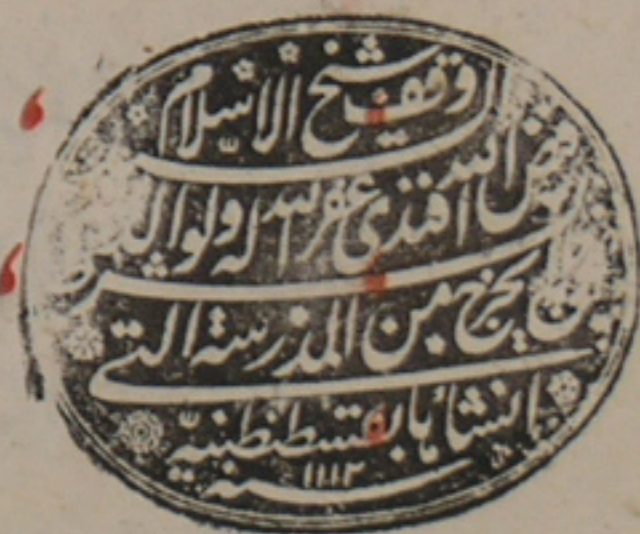 وقف شيخ الاسلام
السيد فيض الله افندى غفر الله له ولوالديه
بشرط ان لا يخرج من المدرسة التى
انشاها بقسطنطنية
سنة ١١١٢